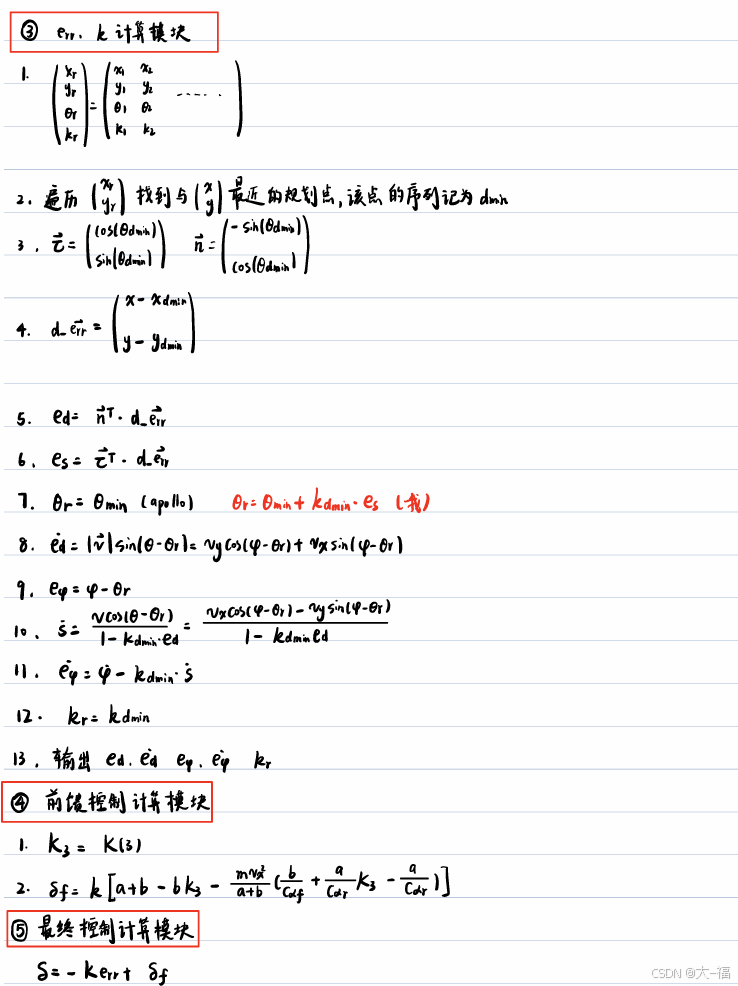 ③ err, k 计算模块
1. (xr yr θr kr) = (x1 x2 y1 y2 θ1 θ2 k1 k2 ......)
2. 遍历 (xr yr) 找到与 (x y) 最近的规划点,该点的序列记为 dmin
3. τ⃗ = (cos(θdmin) sin(θdmin)) n⃗ = (-sin(θdmin) cos(θdmin))
4. d_err⃗ = (x - xdmin y - ydmin)
5. ed = n⃗ᵀ · d_err⃗
6. es = τ⃗ᵀ · d_err⃗
7. θr = θmin (apollo) θr = θmin + kdmin · es (我)
8. ėd = |v⃗| sin(θ - θr) = vy cos(φ - θr) + vx sin(φ - θr)
9. eφ = φ - θr
10. ṡ = vcos(θ - θr) / (1 - kdmin · ed) = (vx cos(φ - θr) - vy sin(φ - θr)) / (1 - kdmin ed)
11. ėφ = φ̇ - kdmin · ṡ
12. kr = kdmin
13. 输出 ed. ėd eφ. ėφ kr
④ 前馈控制计算模块
1. K3 = K(3)
2. δf = k [a + b - bK3 - mvx²/(a+b) (b/Cαf + a/Cαr K3 - a/Cαr)]
⑤ 最终控制计算模块
δ = -kerr + δf
CSDN @大-福